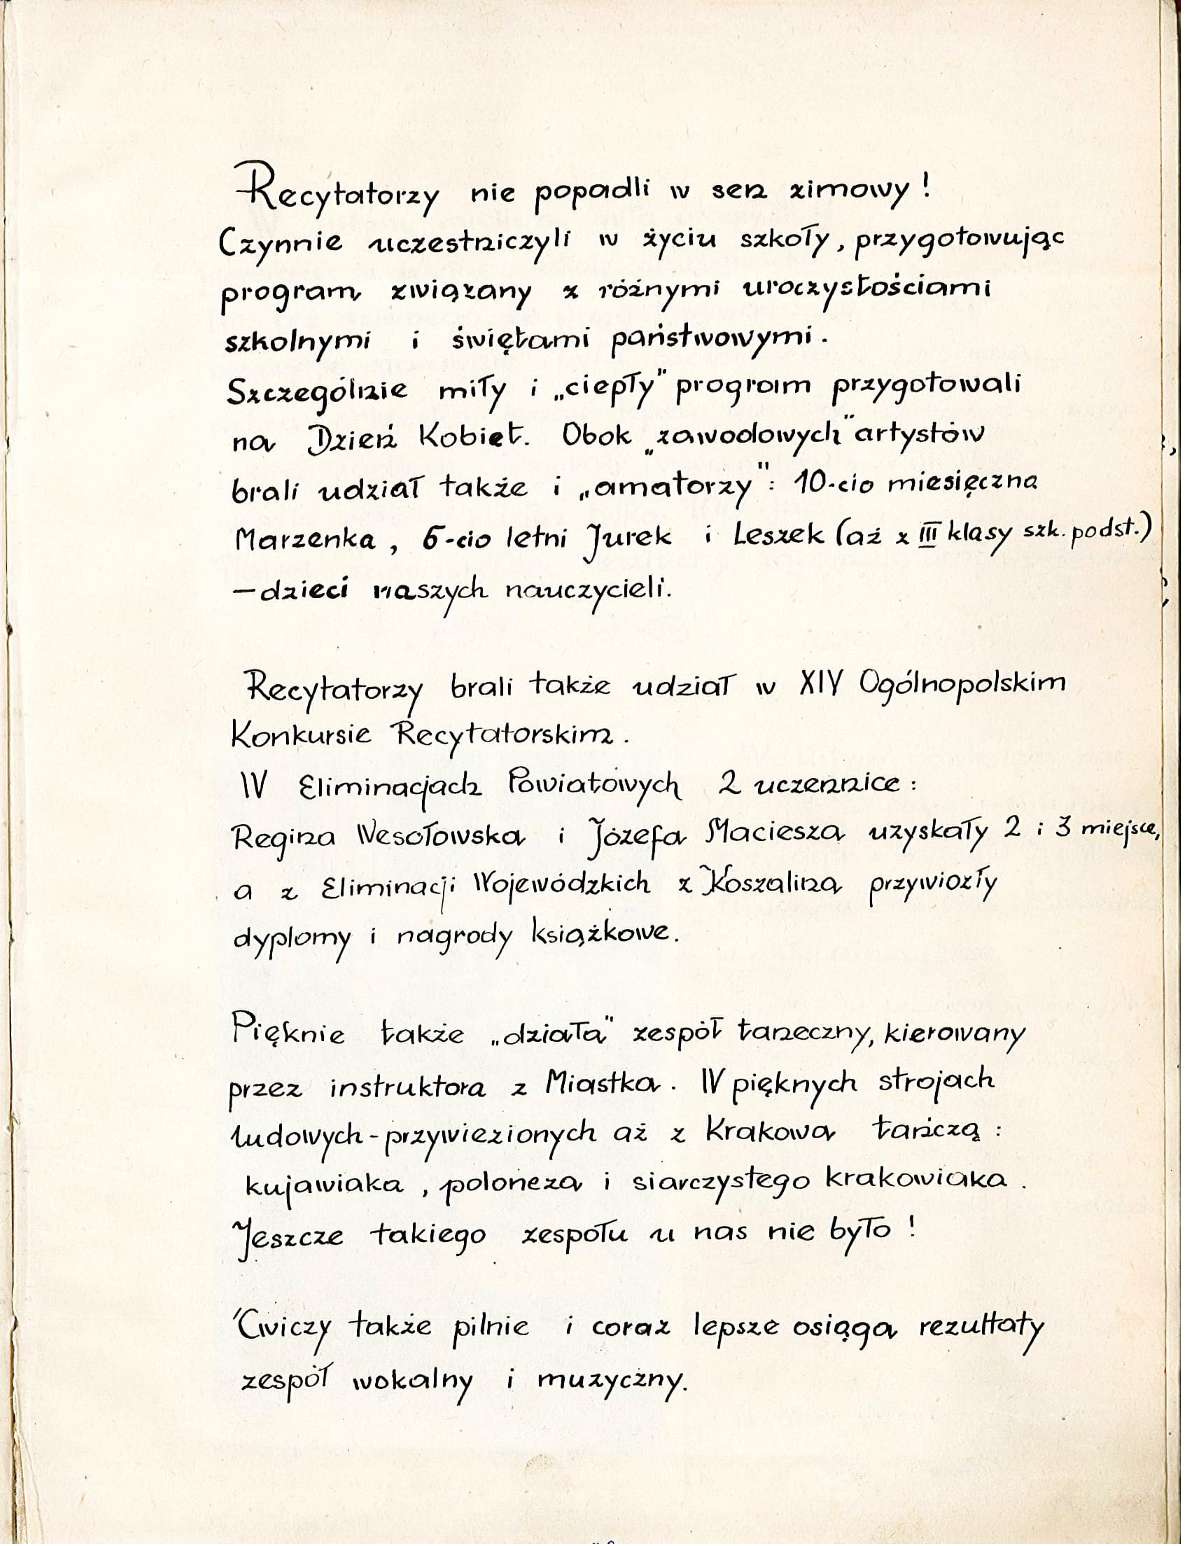 Recytatorzy nie popadli w sen zimowy !
Czynnie uczestniczyli w życiu szkoły, przygotowując
program związany z różnymi uroczystościami
szkolnymi i świętami państwowymi.
Szczególnie miły i „ciepły" program przygotowali
na Dzień Kobiet. Obok „zawodowych" artystów
brali udział także i „amatorzy": 10-cio miesięczna
Marzenka, 6-cio letni Jurek i Leszek (aż z III klasy szk. podst.)
— dzieci naszych nauczycieli.
Recytatorzy brali także udział w XIV Ogólnopolskim
Konkursie Recytatorskim.
W Eliminacjach Powiatowych 2 uczennice :
Regina Wesołowska i Józefa Maciesza uzyskały 2 i 3 miejsce,
a z Eliminacji Wojewódzkich z Koszalina przywiozły
dyplomy i nagrody książkowe.
Pięknie także „działa" zespół taneczny, kierowany
przez instruktora z Miastka. W pięknych strojach
ludowych - przywiezionych aż z Krakowa tańczą :
kujawiaka, poloneza i siarczystego krakowiaka.
Jeszcze takiego zespołu u nas nie było !
Ćwiczy także pilnie i coraz lepsze osiąga rezultaty
zespół wokalny i muzyczny.